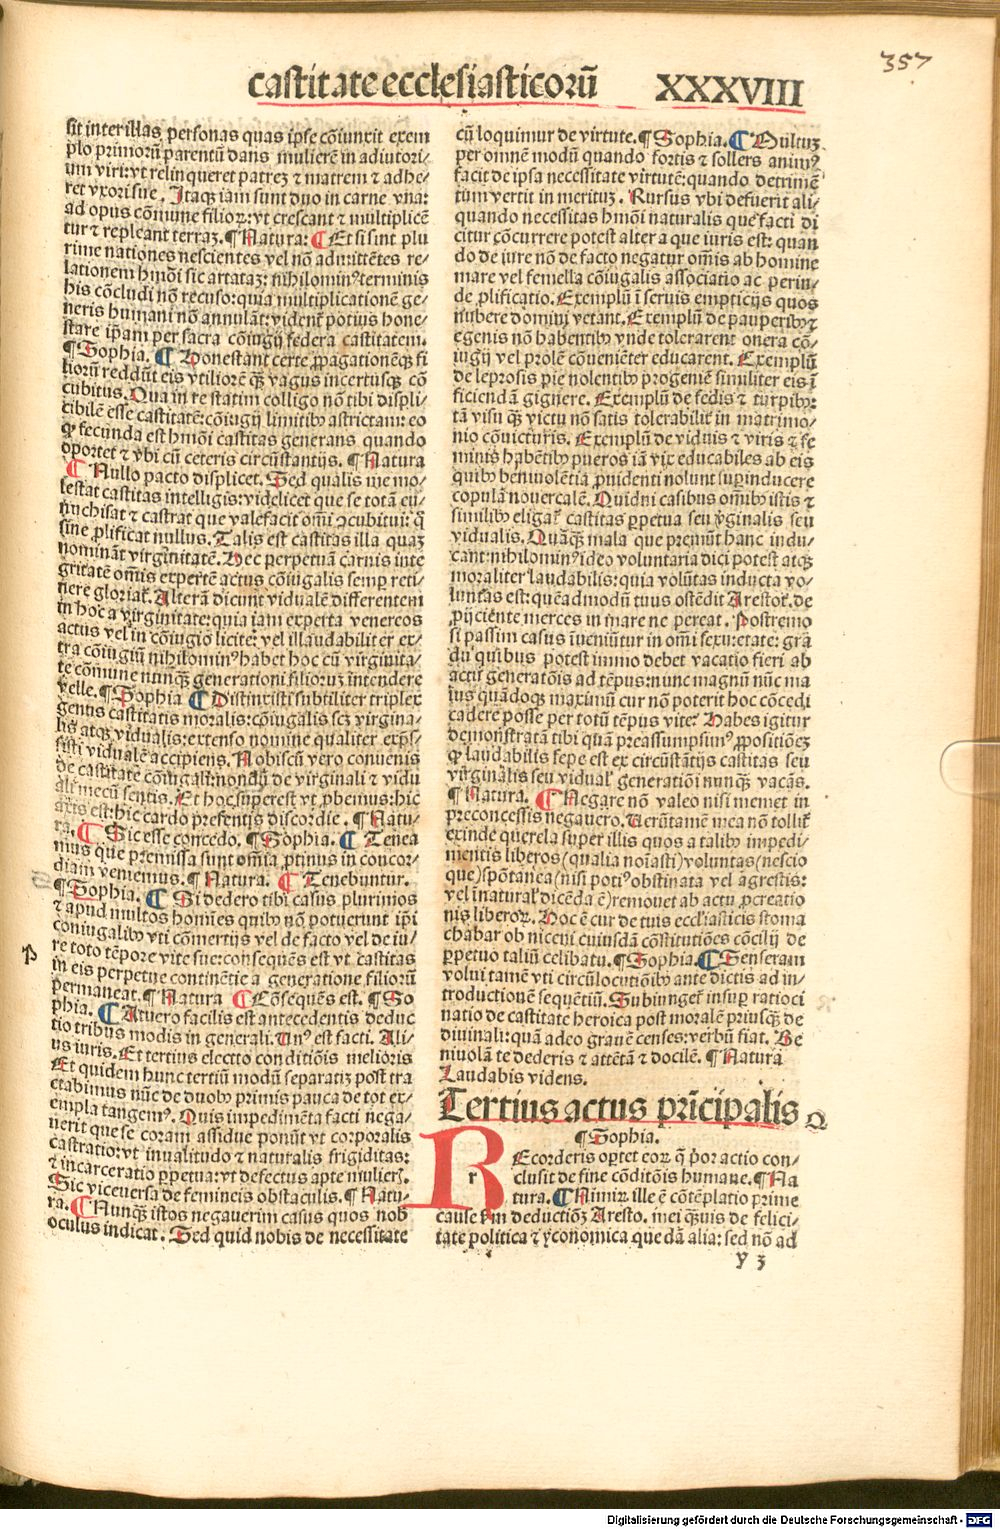 357
castitate ecclesiasticorū XXXVIII
sit inter illas personas quas ipse cōiunxit exem
plo primorū parentū dans mulierē in adiutori⸗
um viri: vt relinqueret patrez ⁊ matrem ⁊ adhe⸗
ret vxori sue. Itaqꝫ iam sunt duo in carne vna:
ad opus cōmune filioꝝ: vt crescant ⁊ multiplicē
tur ⁊ repleant terraꝫ. ¶ Natura: ¶ Et si sint plu
rime nationes nescientes vel nō admittētes re⸗
lationem hmōi sic artataꝫ: nihilominꝰ terminis
his cōcludi nō recuso: quia multiplicationē ge⸗
neris humani nō annulāt: vident̄ potius hone⸗
stare ip̄am per sacra cōiugij federa castitatem.
¶ Sophia. ¶ Honestant certe ꝓpagationēqꝫ fi
liorū reddūt eis vtiliorē qꝫ̄ vagus incertusqꝫ cō
cubitus. Qua in re statim colligo nō tibi displi⸗
cibilē esse castitatē: cōiugij limitibꝰ astrictam: eo
ꝙ fecunda est hmōi castitas generans quando
oportet ⁊ vbi cū ceteris circūstantijs. ¶ Natura
¶ Nullo pacto displicet. Sed qualis me mo⸗
lestat castitas intelligis: videlicet que se totā eu⸗
nuchisat ⁊ castrat que valefacit om̄i ɔcubitui: q̄
sine ꝓlificat nullus. Talis est castitas illa quaꝫ
nomināt virginitatē. Hec perpetuā carnis inte
gritatē om̄is expertē actus cōiugalis semꝑ reti⸗
nere gloriat̄. Alterā dicunt vidualē differentem
in hoc a virginitate: quia iam experta venereos
actus vel in cōiugio licite: vel illaudabiliter ex⸗
tra cōiugiū nihilominꝰ habet hoc cū virginita⸗
te cōmune nunqꝫ̄ generationi filioruꝫ intendere
velle. ¶ Sophia ¶ Distinxisti subtiliter triplex
genus castitatis moralis: cōiugalis scꝫ virgina⸗
lis atqꝫ vidualis: extenso nomine qualiter exp̄s⸗
sisti vidualē accipiens. Nobiscū vero convenis
de castitate cōiugali: nondū de virginali ⁊ vidu
ali mecū sentis. Et hoc superest vt ꝓbemus: hic
artis est: hic cardo presentis discordie. ¶ Natu⸗
ra. ¶ Sic esse concedo. ¶ Sophia. ¶ Tenea
mus que premissa sunt om̄ia ꝓtinus in concor⸗
diam veniemus. ¶ Natura. ¶ Tenebuntur.
¶ Sophia. ¶ Si dedero tibi casus plurimos
⁊ apud multos homines quibꝰ nō potuerunt ip̄i
coniugalibꝰ vti cōmertijs vel de facto vel de iu⸗
re toto tēpore vite sue: consequēs est vt castitas
in eis perpetue continētie a generatione filiorū
permaneat. ¶ Natura ¶ Cōsequēs est. ¶ So
phia. ¶ Atuero facilis est antecedentis deduc
tio tribus modis in generali. Unꝰ est facti. Ali⸗
us iuris. Et tertius electio conditiōis melioris
Et quidem hunc tertiū modū separatiꝫ post tra
ctabimus nūc de duobꝰ primis pauca de tot ex⸗
empla tangemꝰ. Quis impedimēta facti nega⸗
uerit que se coram assidue ponūt vt corporalis
castratio: vt inualitudo ⁊ naturalis frigiditas:
⁊ incarceratio ꝑpetua: vt defectus apte mulier̄.
Sic viceuersa de femineis obstaculis. ¶ Natu⸗
ra. ¶ Nunqꝫ̄ istos negauerim casus quos nob̄
oculus indicat. Sed quid nobis de necessitate
cū loquimur de virtute. ¶ Sophia. ¶ Multuꝫ
per omnē modū quando fortis ⁊ sollers animꝰ
facit de ipsa necessitate virtutē: quando detrimē
tum vertit in merituꝫ. Rursus vbi defuerit ali⸗
quando necessitas hmōi naturalis que facti di
citur cōcurrere potest altera que iuris est: quan
do de iure nō de facto negatur om̄is ab homine
mare vel femella cōiugalis associatio ac perin⸗
de ꝓlificatio. Exemplū ī seruis empticijs quos
nubere domini vetant. Exemplū de pauperibꝰ ⁊
egenis nō habentibꝰ vnde tolerarent onera cō⸗
iugij vel prolē cōueniēter educarent. Exemplū
de leprosis pie nolentibꝰ progeniē similiter eis ī
ficiendā gignere. Exemplū de fedis ⁊ turpibꝰ:
tā visu qꝫ̄ victu nō satis tolerabilit̄ in matrimo⸗
nio cōvicturis. Exemplū de viduis ⁊ viris ⁊ fe
minis habētibꝰ pueros iā vix educabiles ab eis
quibꝰ beniuolētia ꝓuidenti nolunt superinducere
copulā nouercalē. Quidni casibus om̄ibꝰ istis ⁊
similibꝰ eligat̄ castitas ꝑpetua seu v̓ginalis seu
vidualis. Quāqꝫ mala que premūt hanc indu⸗
cant: nihilominꝰ ideo voluntaria dici potest atqꝫ
moraliter laudabilis: quia volūtas inducta vo⸗
lūntas est: quēadmodū tuus ostēdit Arestot̄. de
ꝓijciente merces in mare ne pereat. Postremo
si passim casus īueniūtur in om̄i sexu: etate: gra
du quibus potest immo debet vacatio fieri ab
actu generatōis ad tēpus: nunc magnū nūc ma
ius quādoqꝫ maximū cur nō poterit hoc cōcedi
cadere posse per totū tēpus vite. Habes igitur
demonstratā tibi quā preassumpsimꝰ ꝓpositiōeꝫ
ꝙ laudabilis sepe est ex circūstātijs castitas seu
virginalis seu vidual̄ generatiōi nunqꝫ̄ vacās.
¶ Natura. ¶ Negare nō valeo nisi memet in
preconcessis negauero. Uerūtamē mea nō tollit̄
exinde querela super illis quos a talibꝰ impedi⸗
mentis liberos (qualia noīasti) voluntas (nescio
que) spōtanea (nisi potiꝰ obstinata vel agrestis:
vel inatural̄ dicēda ē) remouet ab actu ꝓcreatio
nis liberoꝝ. Hoc ē cur de tuis eccl̄iasticis stoma
chabar ob niceni cuiusdā cōstitutiōes cōcilij de
ꝑpetuo taliū celibatu. ¶ Sophia. ¶ Senseram
volui tamē vti circūlocutiōibꝰ ante dictis ad in⸗
troductionē sequētiū. Subiunget̄ insuꝑ ratioci
natio de castitate heroica post moralē priusqꝫ̄ de
diuinali: quā adeo grauē censes: verbū fiat. Be
niuolā te dederis ⁊ attētā ⁊ docilē. ¶ Natura
Laudabis videns.
Tertius actus prīcipalis Q
¶ Sophia.
R r Ecorderis oꝑtet coꝝ q̄ p̓or actio con⸗
clusit de fine cōditōis humane. ¶ Na
tura. ¶ Nimiꝝ ille ē cōtēplatio prime
cause ẜm deductiōꝫ Aresto. mei qꝫ̄uis de felici⸗
tate politica ⁊ yconomica que dā alia: sed nō ad
y 3
Digitalisierung gefördert durch die Deutsche Forschungsgemeinschaft - DFG